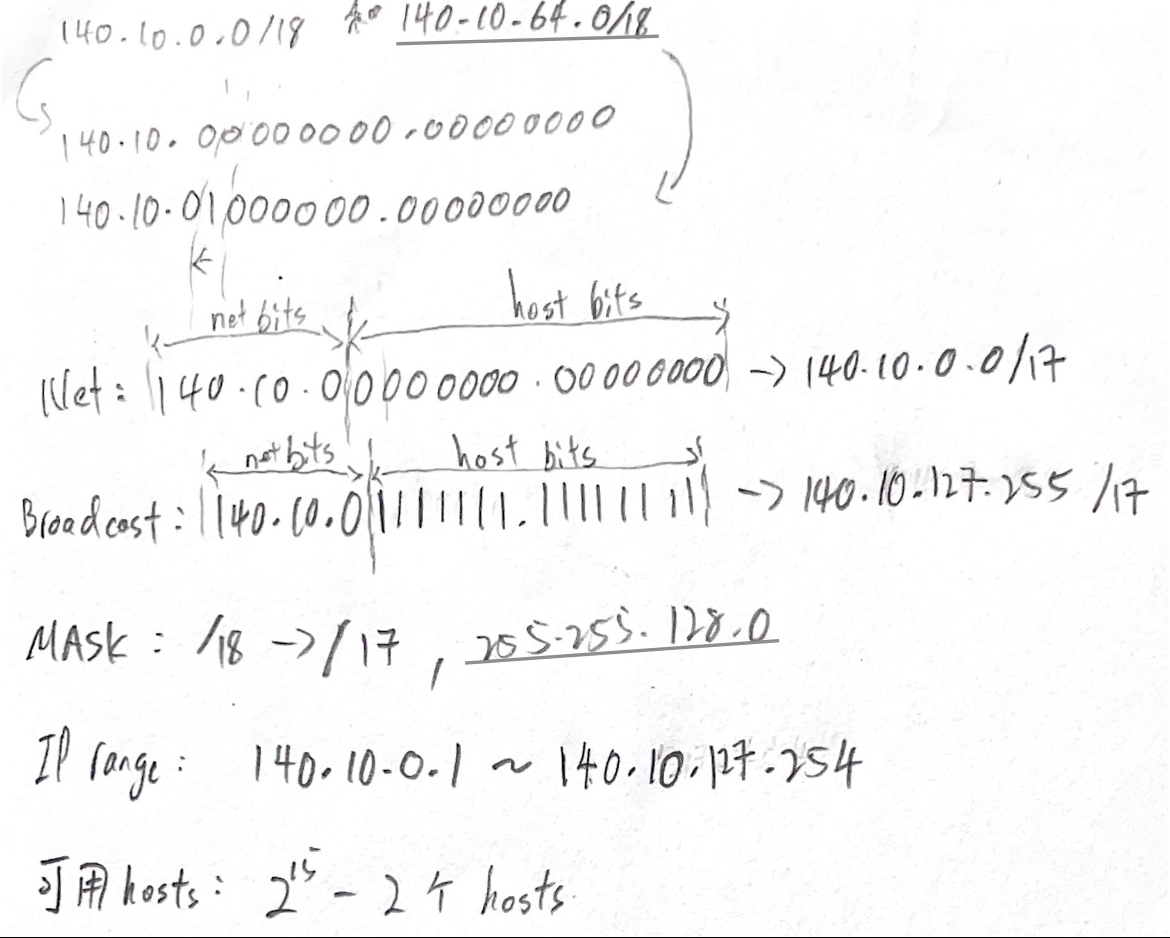 140.10.0.0/18 和 140.10.64.0/18
140.10.00000000.00000000
140.10.01000000.00000000
net bits host bits
Net: 140.10.00000000.00000000 → 140.10.0.0/17
net bits host bits
Broadcast: 140.10.01111111.11111111 → 140.10.127.255 /17
MASK: /18 → /17, 255.255.128.0
IP range: 140.10.0.1 ~ 140.10.127.254
可用 hosts: 2¹⁵ - 2 个 hosts.